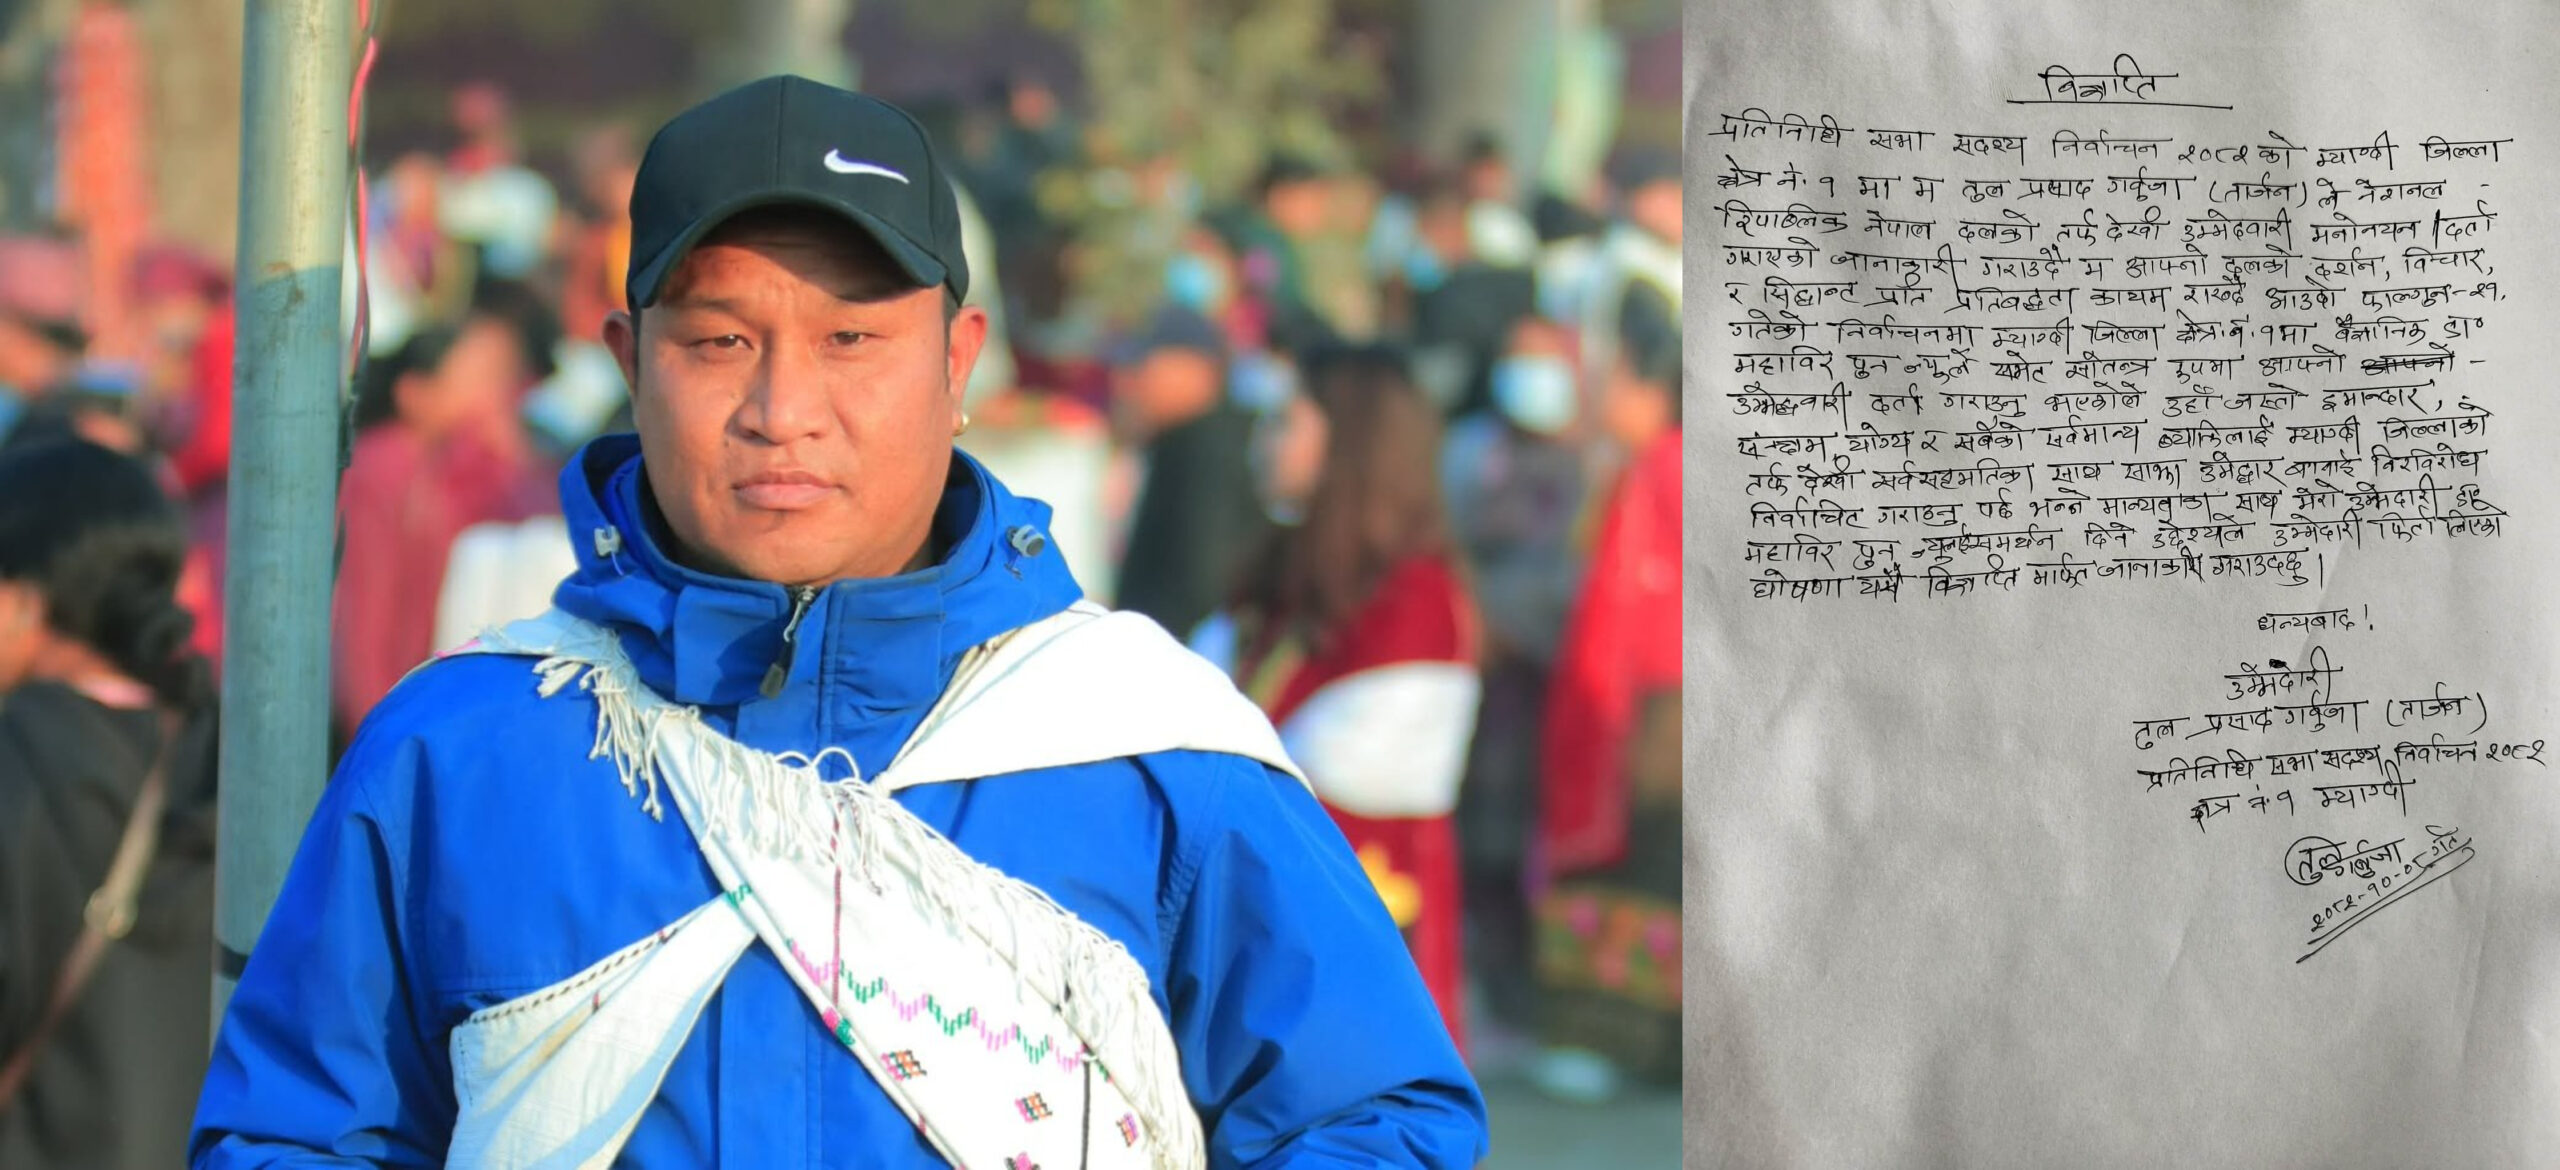 विज्ञप्ति
प्रतिनिधी सभा सदस्य निर्वाचन २०८२ को म्याग्दी जिल्ला
क्षेत्र नं. १ मा म तुल प्रसाद गर्बुजा (तार्जन) ले नेशनल -
रिपब्लिक नेपाल दलको तर्फ देखी उम्मेदवारी मनोनयन दर्ता
गराएको जानाकारी गराउदै म आफ्नो दलको दर्शन, विचार,
र सिद्धान्ट प्रति प्रतिबद्धता कायम राख्दै आउदो फाल्गुन-२१,
गतेको निर्वाचनमा म्याग्दी जिल्ला क्षेत्र नं. १मा बैज्ञानिक डा०
महाविर पुन ज्यूले समेट सोतन्त्र रुपमा आफ्नो आफ्नो -
उम्मेद्धवारी दर्ता गराउनु भएकोले उहाँ जस्तो इमान्दार,
योग्य र सबैको सर्वमान्य ब्याक्तिलाई म्याग्दी जिल्लाको
तर्फ देखी सर्वसहमतिका साथ साझा उमेद्धार बनाई निरविरोध
निर्वाचित गराउनु पर्छ भन्ने मान्यताका साथ मेरो उम्मेदारी डा०
महाविर पुन ज्यूलाई समर्थन दिने उदेश्यले उम्मेदारी फिर्ता लिएको
घोषणा यसै विज्ञप्ति मार्फत जानाकारी गराउदछु।
धन्यबाद!
उम्मेदारी
तुल प्रसाद गर्बुजा (तार्जन)
प्रतिनिधि सभा सदस्य निर्वाचन २०८२
क्षेत्र नं. १ म्याग्दी
तुल गर्बुजा
२०८२-१०-०८ गते